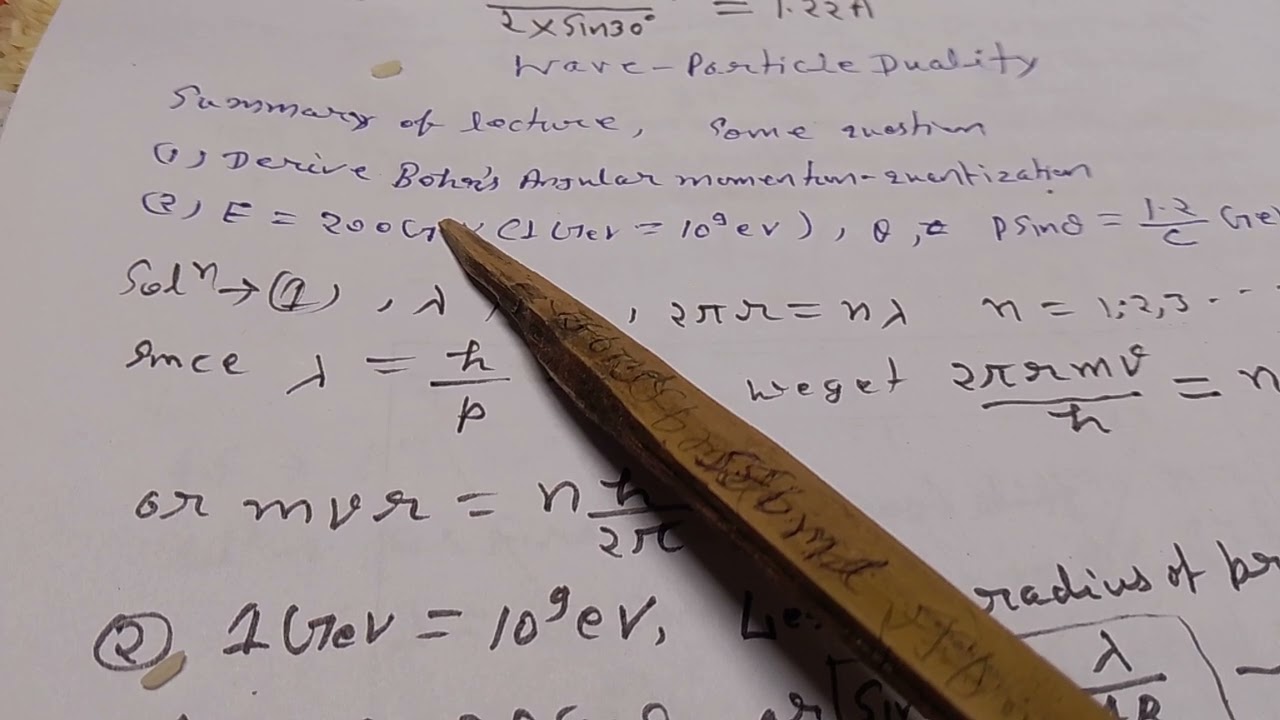 2×Sin30° = 1.22A
Wave-Particle Duality
Summary of lecture, Some question
(1) Derive Bohr's Angular momentum-quantization
(2) E = 200G (1 GeV = 10⁹eV), θ, PSinθ = 1.2/C Ge
Solⁿ→(1), λ, 2πr = nλ n = 1,2,3...
since λ = ħ/p we get 2πrmv/ħ = n
or mvr = n ħ/2π
② 1 GeV = 10⁹eV, radius of
λ